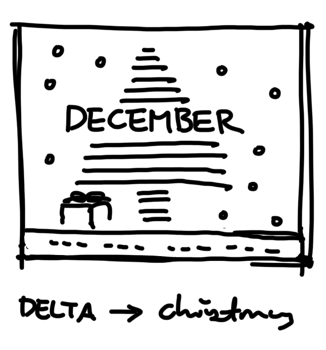 DECEMBER
DELTA → christmas